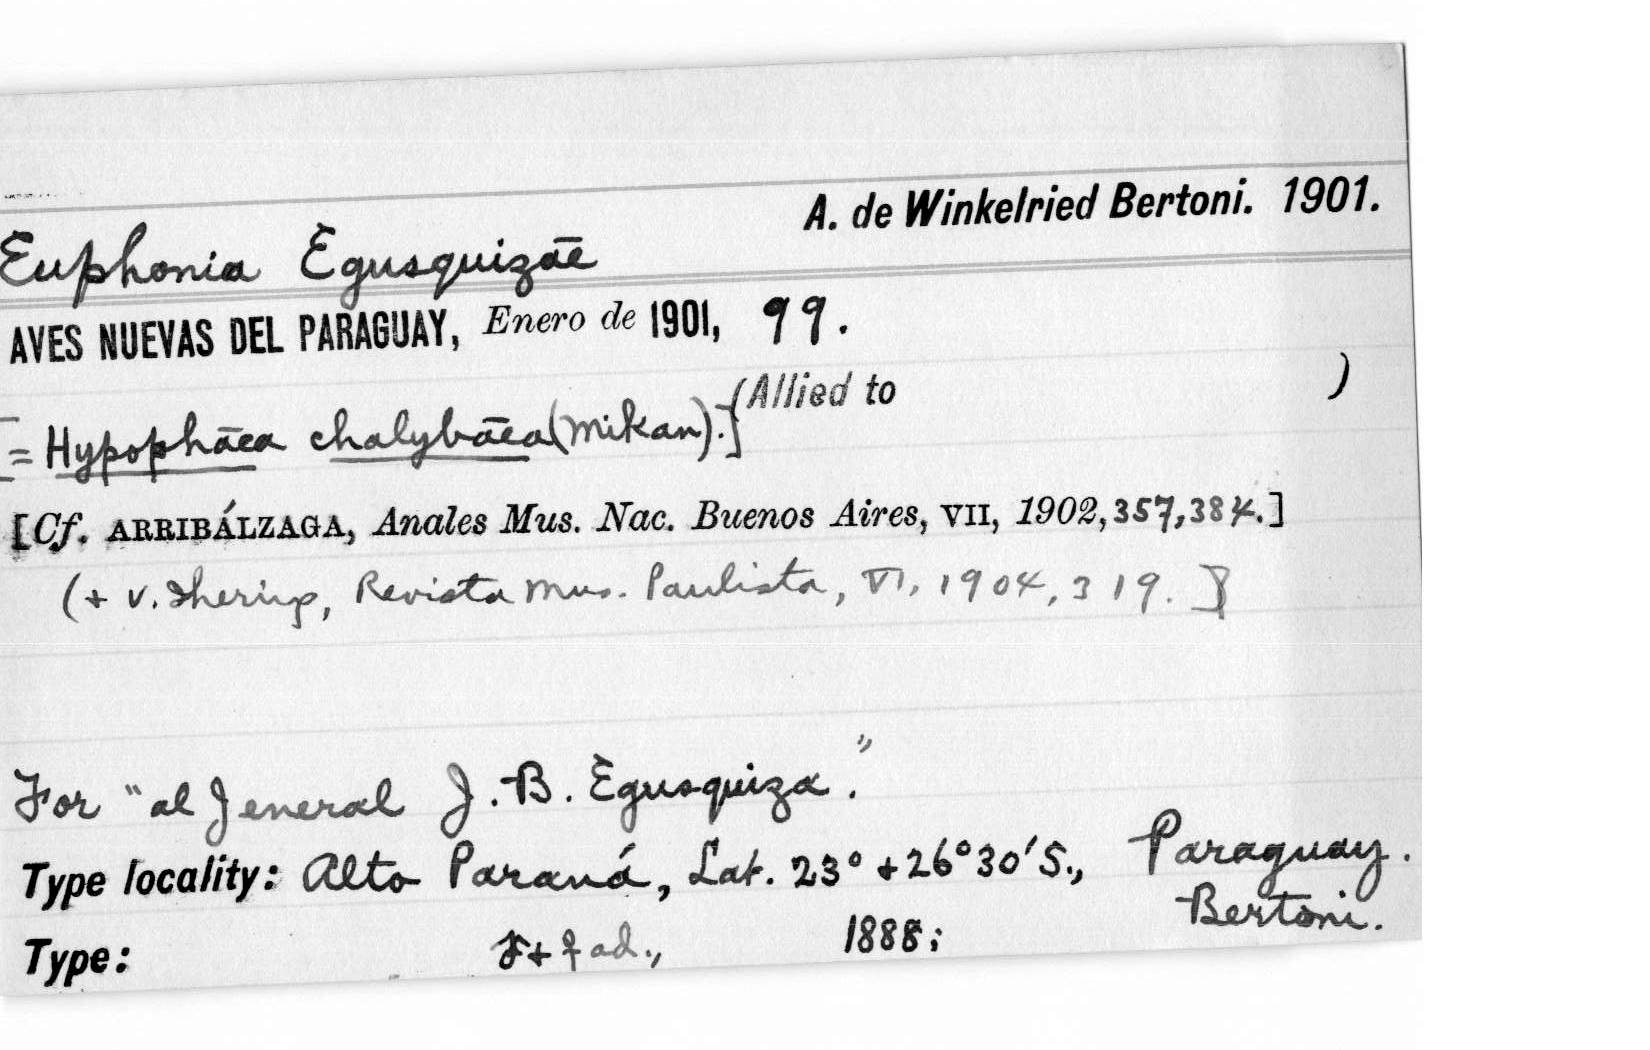 A. de Winkelried Bertoni. 1901.
Euphonia Egusquizāe
AVES NUEVAS DEL PARAGUAY, Enero de 1901, 99.
(Allied to )
= Hypophāea chalybāea (Mikan).]
[Cf. ARRIBÁLZAGA, Anales Mus. Nac. Buenos Aires, VII, 1902, 357, 384.]
(+ v. Ihering, Revista Mus. Paulista, VI, 1904, 319.]
For "al Jeneral J. B. Egusquiza."
Type locality: Alto Paraná, Lat. 23° + 26°30'S., Paraguay.
Bertoni.
Type: ♂ + ♀ ad., 1888;